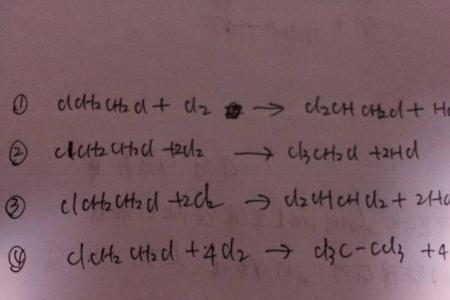 ① ClCH2CH2Cl + Cl2 → Cl2CHCH2Cl + HC
② ClCH2CH2Cl + 2Cl2 → Cl3CH2Cl + 2HCl
③ ClCH2CH2Cl + 2Cl2 → Cl2CHCHCl2 + 2HC
④ ClCH2CH2Cl + 4Cl2 → Cl3C-CCl3 + 4